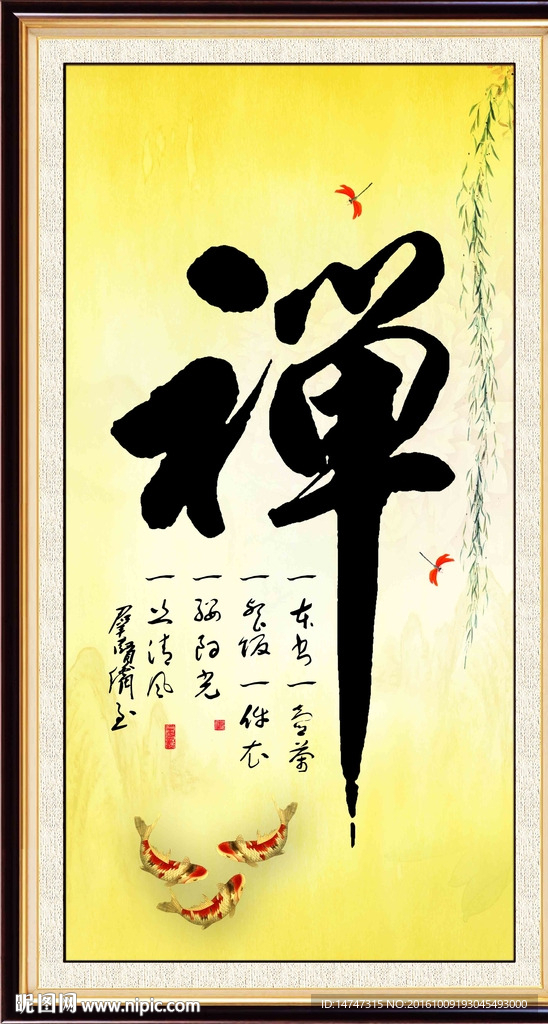 禪
一本书一壶茶
一餐饭一件衣
一缕阳光
一丝清风
昵图网 www.nipic.com
ID:14747315 NO:20161009193045493000